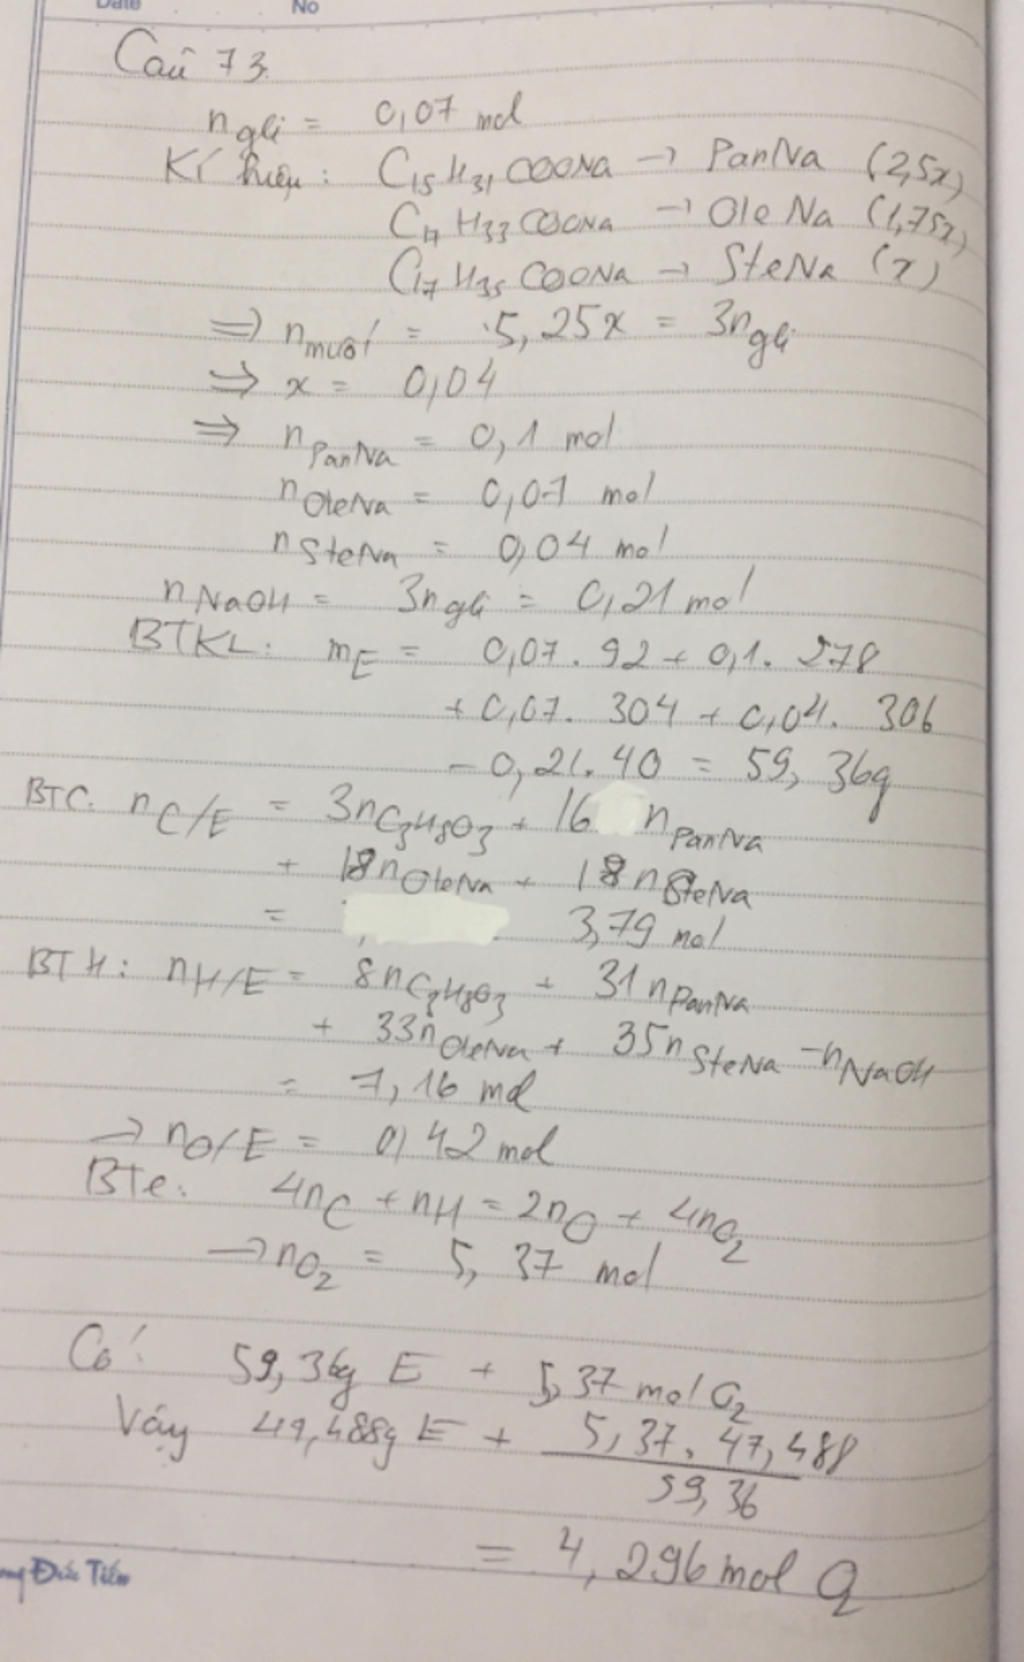 Date No
Câu 73.
n gli = 0,07 mol
Kí hiệu: C15H31COONa → PanNa (2,5x)
C17H33COONa → OleNa (1,75x)
C17H35COONa → SteNa (x)
=> n muối = 5,25x = 3n gli
=> x = 0,04
=> n PanNa = 0,1 mol
n OleNa = 0,07 mol
n SteNa = 0,04 mol
n NaOH = 3n gli = 0,21 mol
BTKL: mE = 0,07.92 + 0,1.278
+ 0,07.304 + 0,04.306
- 0,21.40 = 59,36g
BTC: nC/E = 3nC3H8O3 + 16 n PanNa
+ 18n OleNa + 18n SteNa
= 3,79 mol
BTH: nH/E = 8nC3H8O3 + 31 n PanNa
+ 33n OleNa + 35n SteNa - n NaOH
= 7,16 mol
→ nO/E = 0,42 mol
BTe: 4nC + nH = 2nO + 4nO2
→ nO2 = 5,37 mol
Có: 59,36g E + 5,37 mol O2
Vậy 47,488g E + 5,37.47,488
59,36
= 4,296 mol O2
Đức Tiến